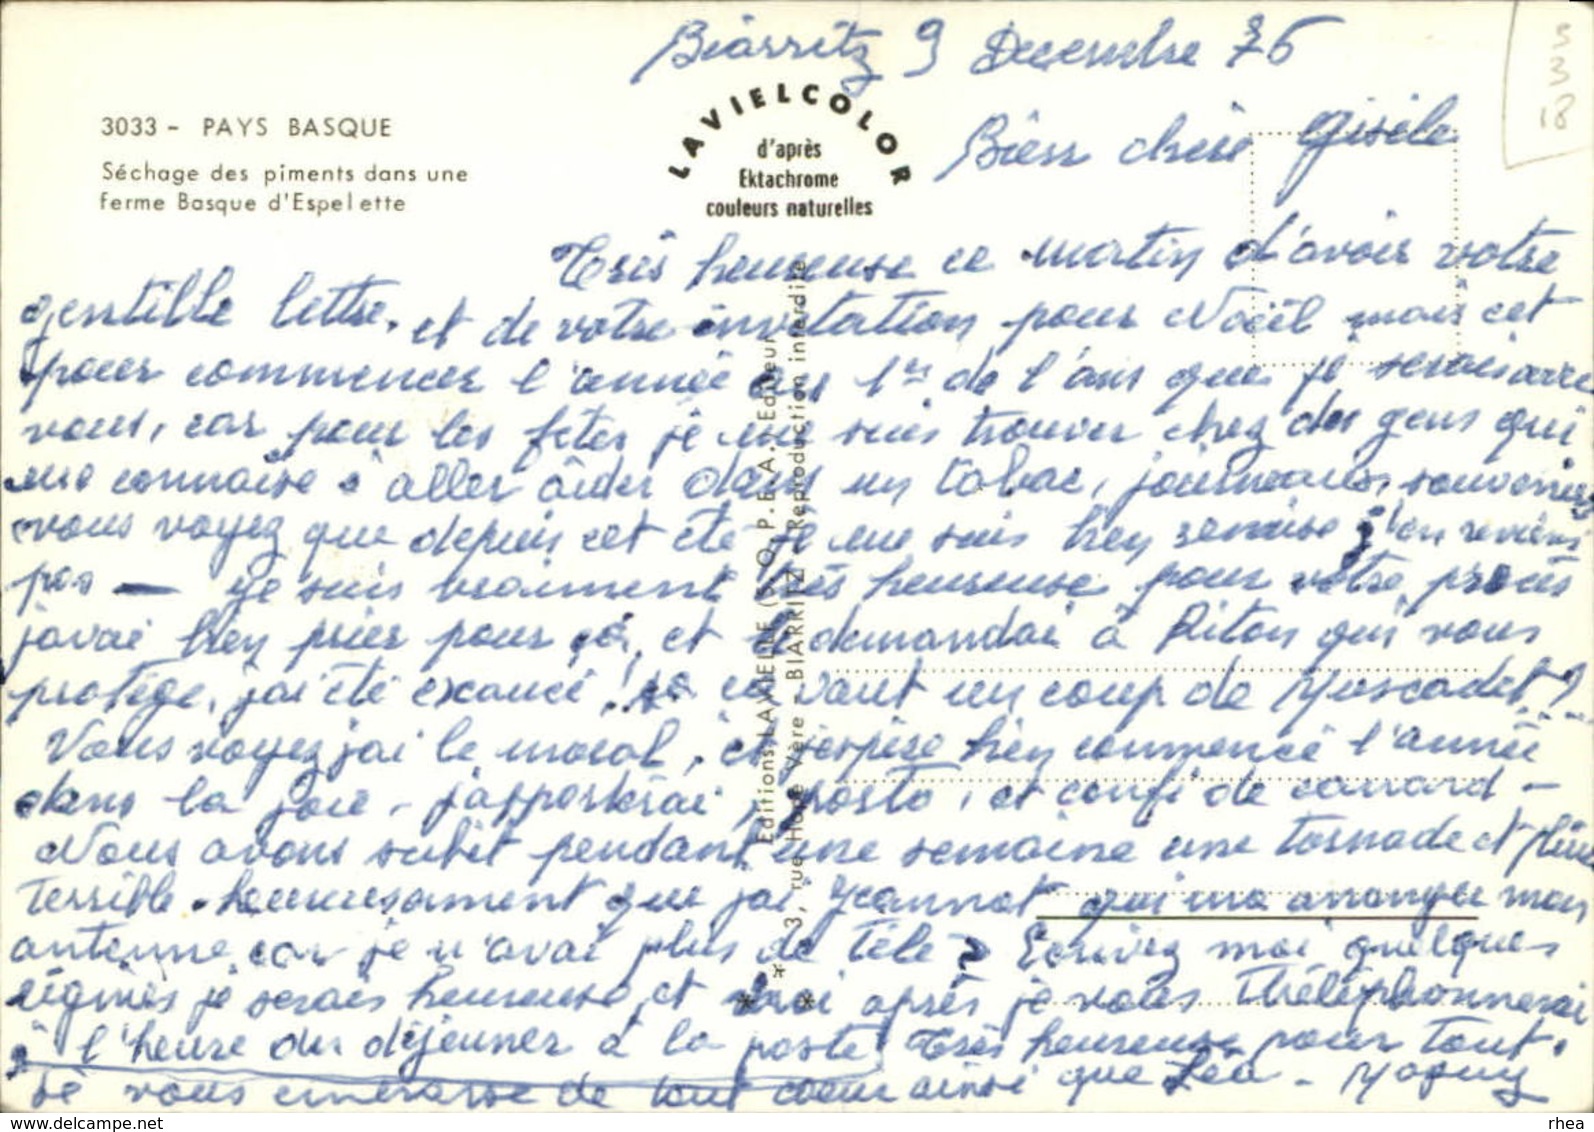 Biarritz 9 Decembre 76
3033 - PAYS BASQUE
Séchage des piments dans une
ferme Basque d'Espelette
LAVIELCOLOR
d'après
Ektachrome
couleurs naturelles
5
3
18
Bien chère Gisèle
Très heureuse ce matin d'avoir votre
gentille lettre, et de votre invitation pour Noël mais cet
pour commencer l'année au 1er de l'ans que je serais avec
vous, car pour les fetes je me suis trouver chez des gens qui
me connaise à aller âider dans un tabac, journeaux, souvenirs
vous voyez que depuis cet été je me suis bien remise j'en reviens
pas — je suis vraiment très heureuse pour votre procés
javai bien prier pour ça, et demandai à Riton qui vous
protège, jai été exaucé! ça vaut un coup de Muscadet!
Vous voyez jai le moral, et bien commencé l'année
dans la joie - japporterai, et confi de canard -
Nous avons subit pendant une semaine une tornade et pluie
terrible. heureusement que jai Jeannot qui ma arranger mon
antenne, car je n'avai plus de télé Ecrivez moi quelques
lignes je serais heureuse, et moi après je vous théléphonnerai
à l'heure du déjeuner à la poste Très heureuse pour tout.
je vous embrasse de tout coeur ainsi que Léa - Maguy
Editions LAVIELLE (S.O.P.E.A. Editeur)
3, rue Have Vère - BIARRITZ - Reproduction interdite
www.delcampe.net
rhea